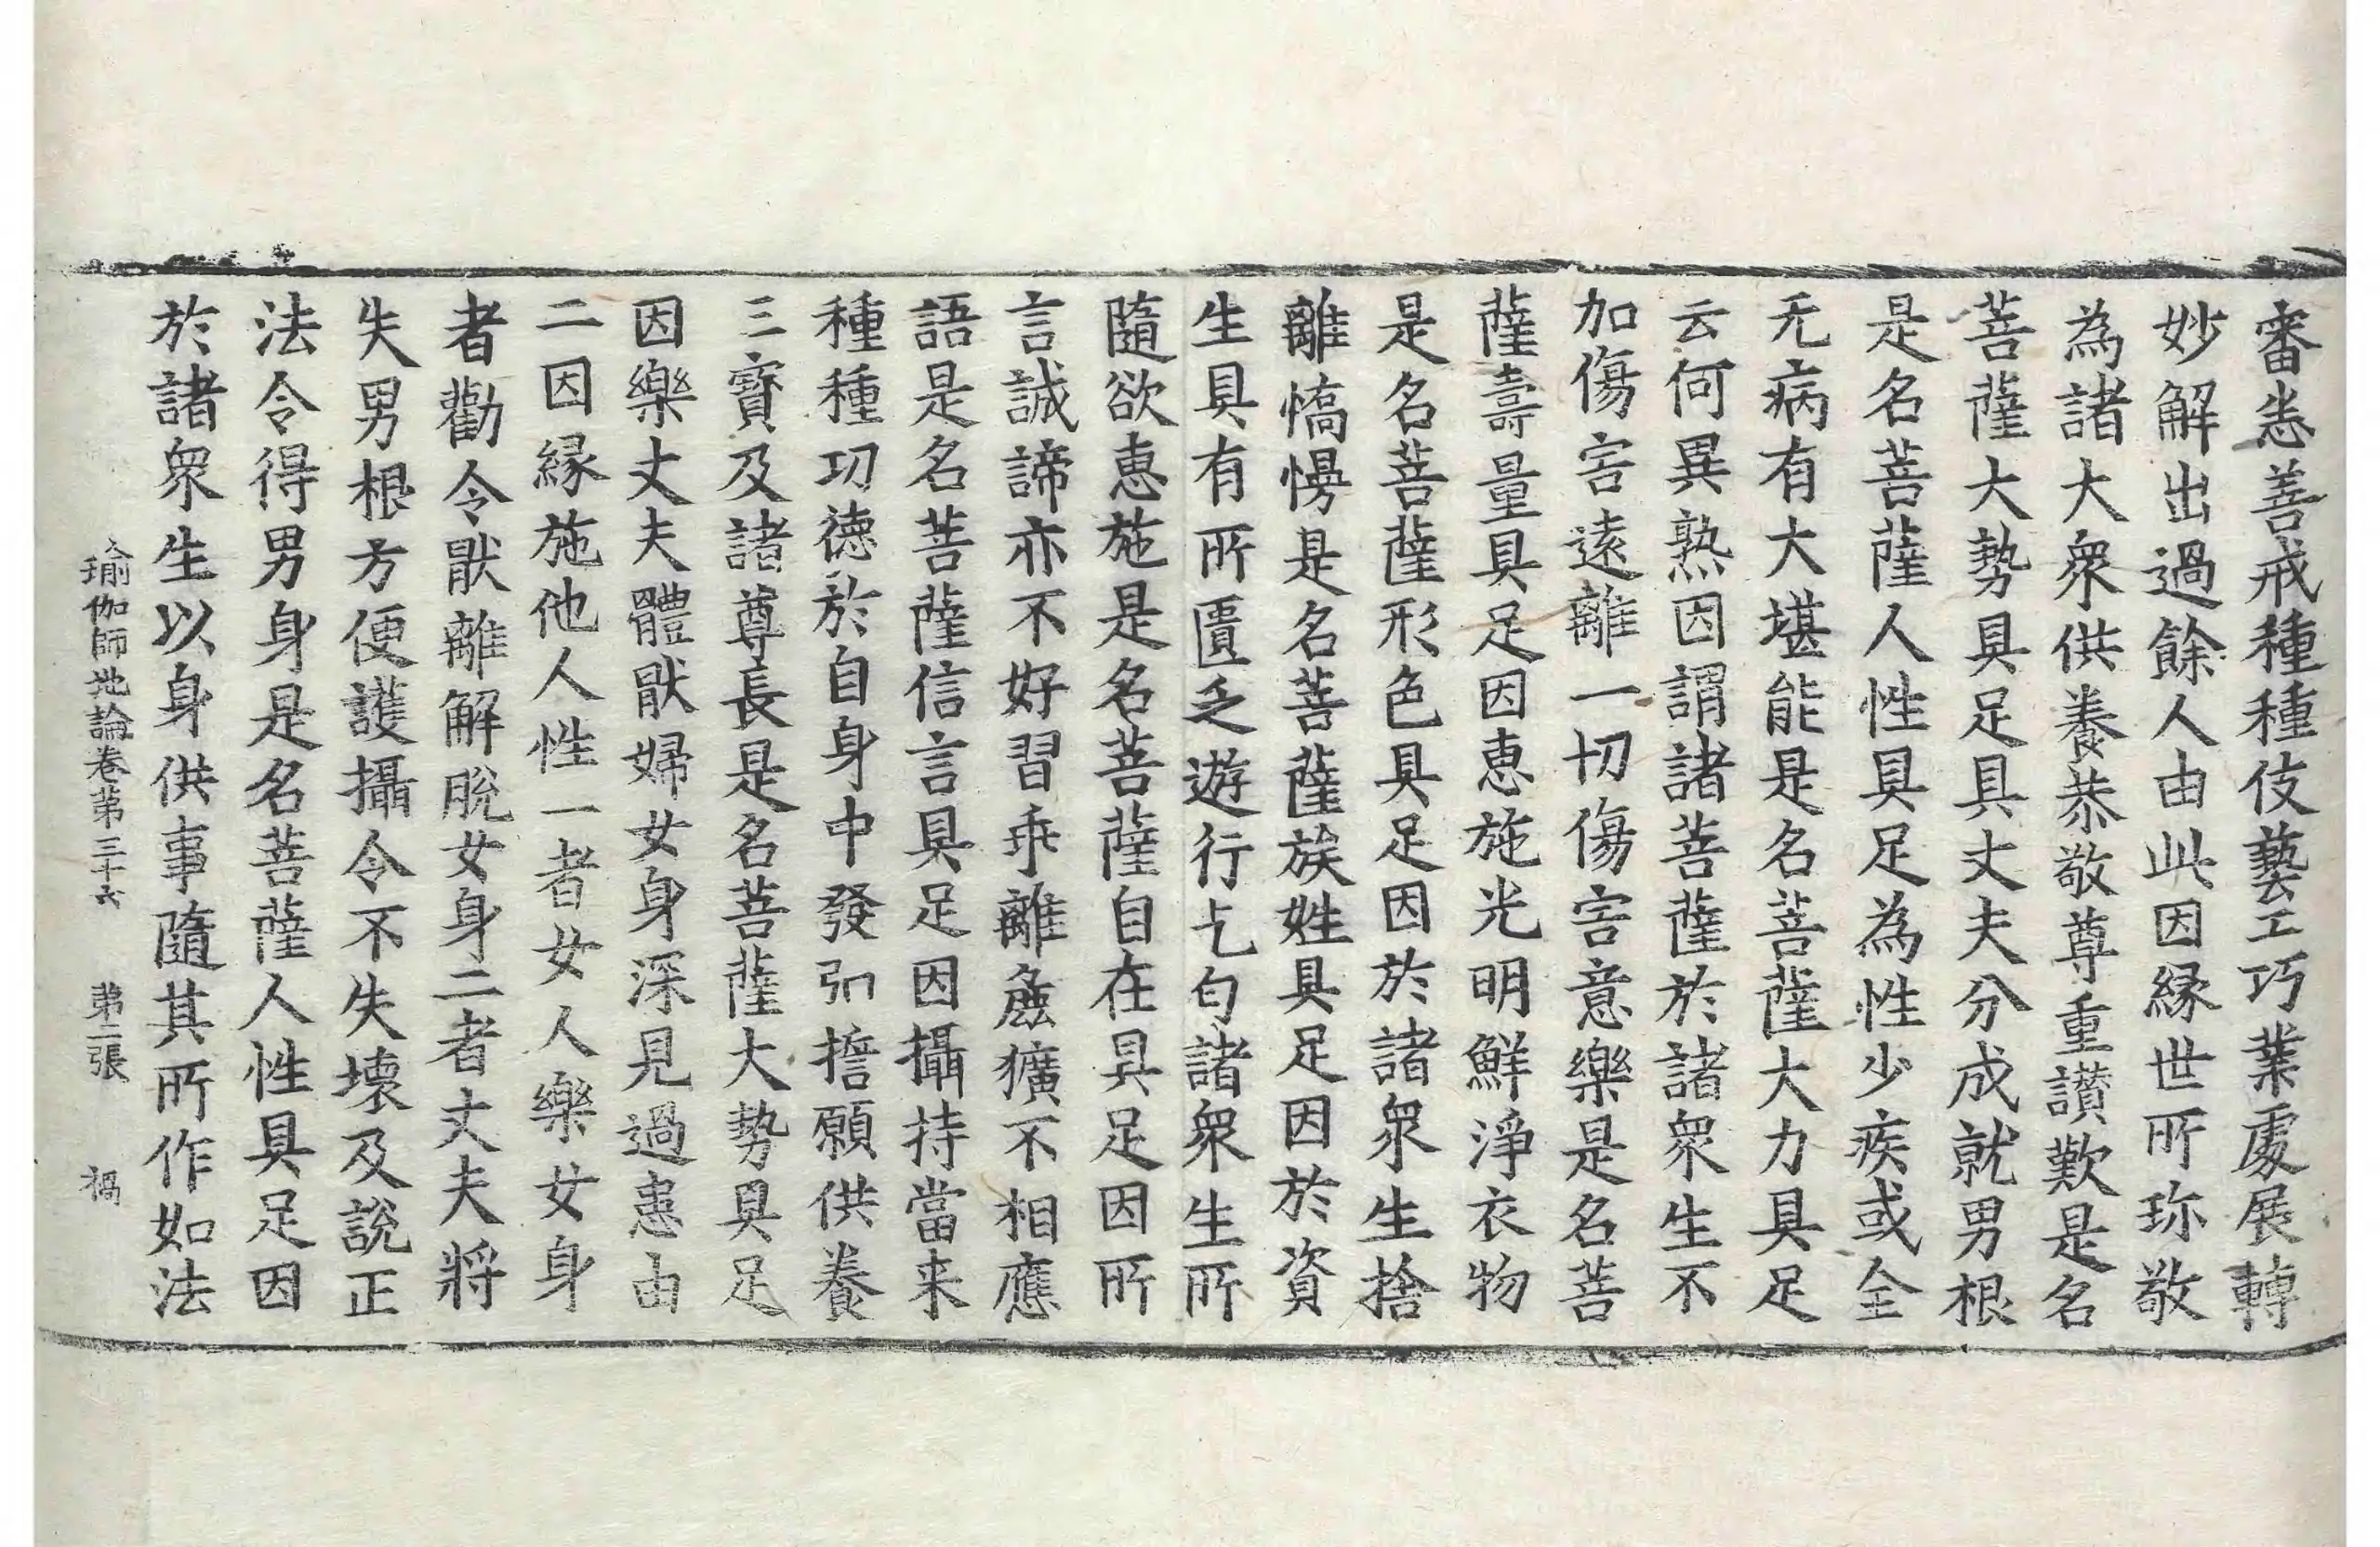 審悉善戒種種伎藝工巧業處展轉
妙解出過餘人由此因緣世所珎敬
為諸大衆供養恭敬尊重讃歎是名
菩薩大勢具足具丈夫分成就男根
是名菩薩人性具足為性少疾或全
无病有大堪能是名菩薩大力具足
云何異熟因謂諸菩薩於諸衆生不
加傷害遠離一切傷害意樂是名菩
薩壽量具足因恵施光明鮮淨衣物
是名菩薩形色具足因於諸衆生捨
離憍慢是名菩薩族姓具足因於資
生具有所匱乏遊行乞匃諸衆生所
隨欲恵施是名菩薩自在具足因所
言誠諦亦不好習乖離麁獷不相應
語是名菩薩信言具足因攝持當来
種種功德於自身中發弘擔願供養
三寶及諸尊長是名菩薩大勢具足
因樂丈夫體猒婦女身深見過患由
二因緣施他人性一者女人樂女身
者勸令猒離解脫女身二者丈夫將
失男根方便護攝令不失壞及說正
法令得男身是名菩薩人性具足因
於諸衆生以身供事隨其所作如法
瑜伽師地論卷苐三十六 苐二張 禍